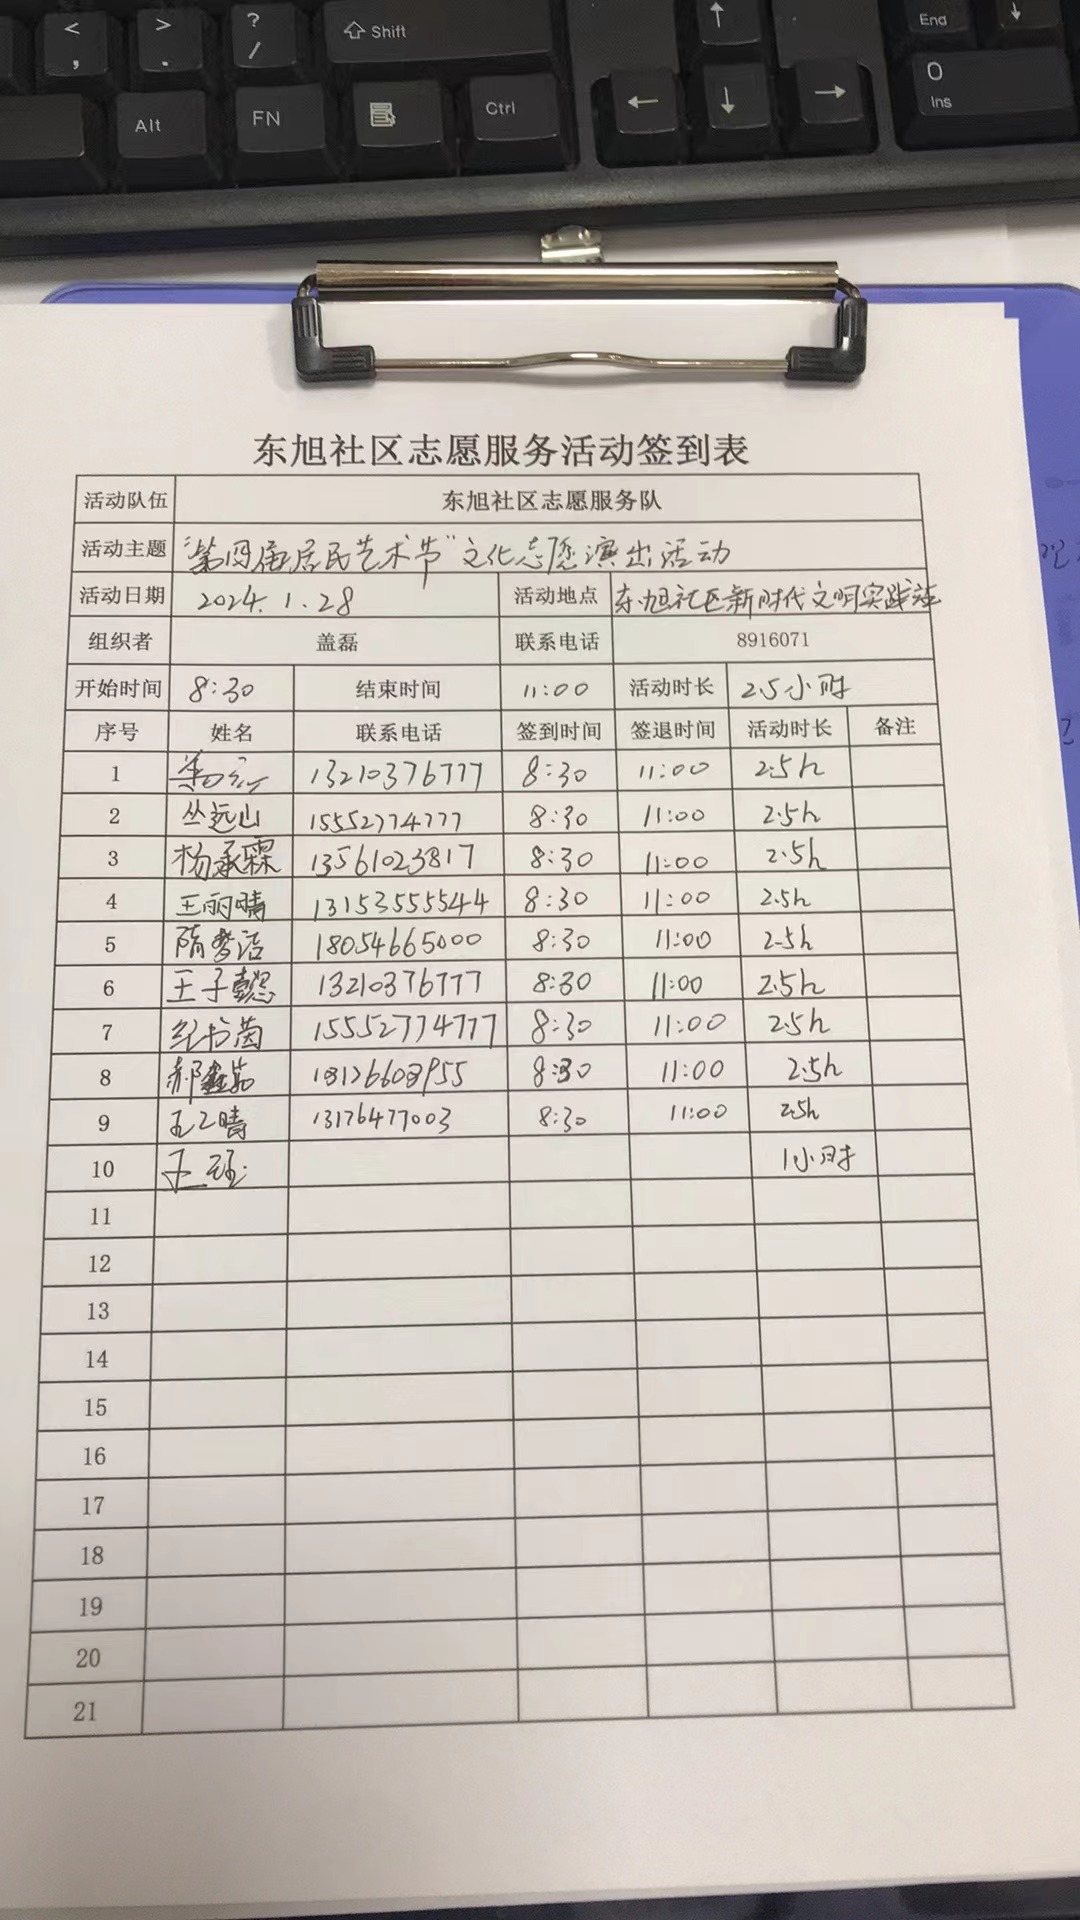 < ,
> .
? /
Shift
↑
End
↓
Alt
FN
Ctrl
←
↓
→
0 Ins
东旭社区志愿服务活动签到表
活动队伍 东旭社区志愿服务队
活动主题 “第四届居民艺术节”文化志愿演出活动
活动日期 2024.1.28 活动地点 东旭社区新时代文明实践站
组织者 盖磊 联系电话 8916071
开始时间 8:30 结束时间 11:00 活动时长 2.5小时
序号 姓名 联系电话 签到时间 签退时间 活动时长 备注
1 13210376777 8:30 11:00 2.5h
2 丛远山 15552774777 8:30 11:00 2.5h
3 杨承霖 13561023817 8:30 11:00 2.5h
4 王丽晴 13153555544 8:30 11:00 2.5h
5 隋梦洁 18054665000 8:30 11:00 2.5h
6 王子懿 13210376777 8:30 11:00 2.5h
7 纪书茵 15552774777 8:30 11:00 2.5h
8 郝 8:30 11:00 2.5h
9 晴 13176477003 8:30 11:00 2.5h
10 王 1小时
11
12
13
14
15
16
17
18
19
20
21